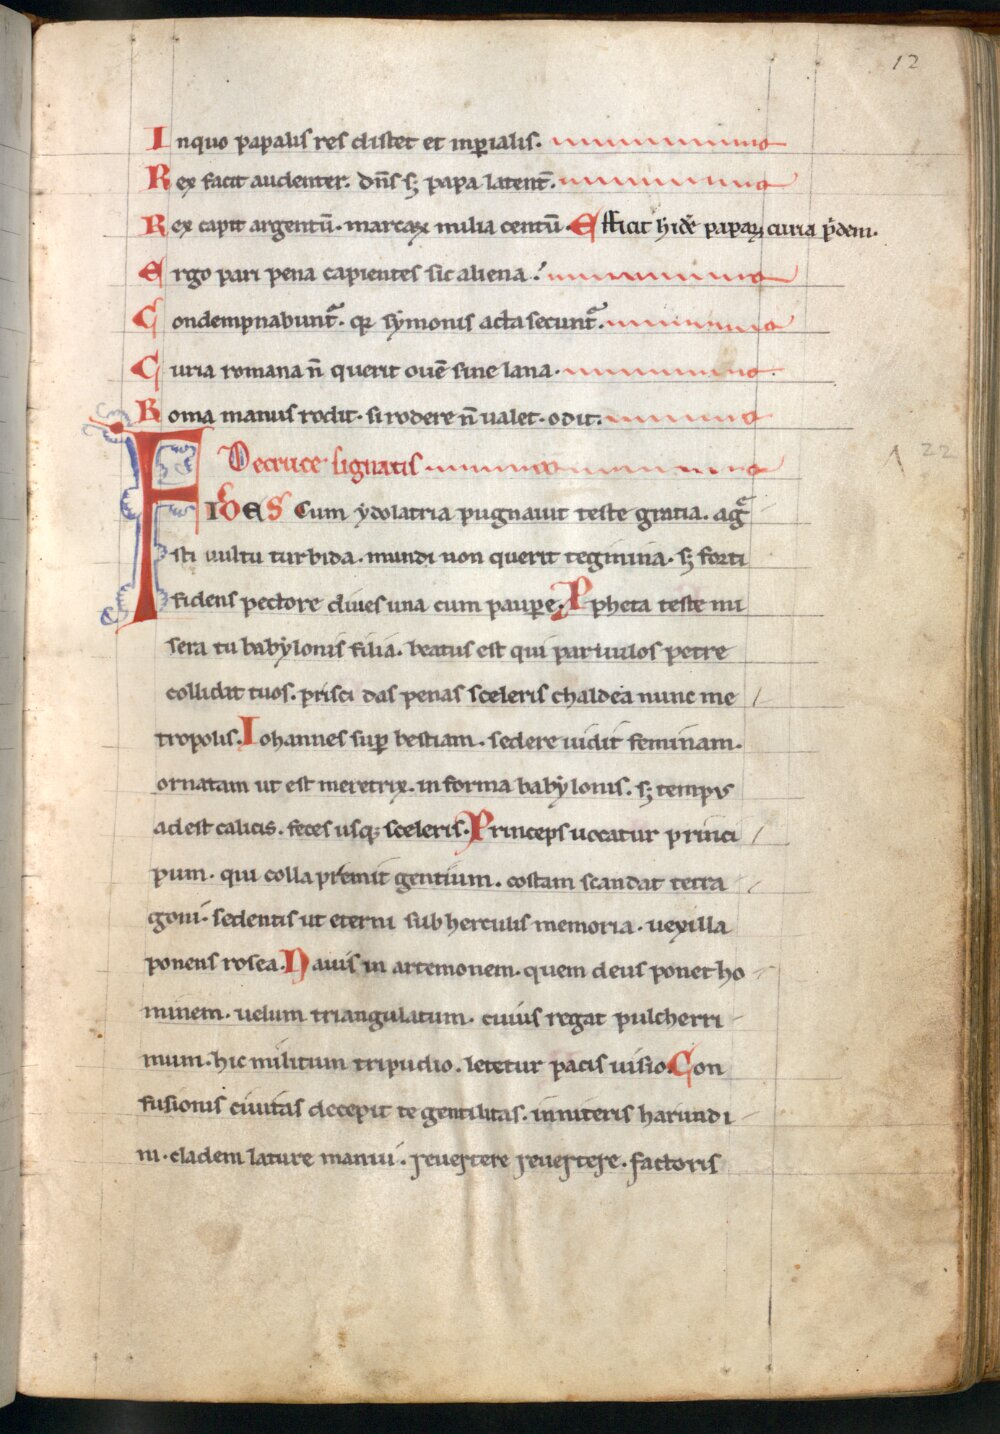 12
In quo papalis res distet et inp̲ialis.
Rex facit audenter. dn̄s sꝫ papa latent̄.
Rex capit argentū. marcaꝝ milia centū. Efficit hidē papaꝝ curia p̄dem.
Ergo pari pena capientes sic aliena.
Condempnabunt᷑. qꝛ symonis acta secunt᷑.
Curia romana n̄ querit ouē sine lana.
Roma manus rodit. si rodere n̄ ualet. odit.
De cruce signatis
22
FIDES Cum ydolatria pugnauit teste gratia. ag᷑
sti uultu turbida. mundi non querit tegmina. sꝫ forti
fidens pectore diues una cum paupe̲. Ppheta teste mi
sera tu babylonis filia. beatus est qui paruulos petre
collidit tuos. prisci das penas sceleris chaldea nunc me
tropolis. Iohannes sup̲ bestiam. sedere uidit feminam.
ornatam ut est meretrix. in forma babylonis. sꝫ tempus
adest calicis. feces usqꝫ sceleris. Princeps uocatur princi
pum. qui colla premit gentium. costam scandat tetra
goni. sedentis ut eterni sub herculis memoria. uexilla
ponens rosea. Nauis in artemonem. quem deus ponet ho
minem. uelum triangulatum. cuius regat pulcherri
mum. hic militum tripudio. letetur pacis uisio. Con
fusionis ciuitas decepit te gentilitas. inniteris harundi
ni. cladem lature manui. reuertere reuertere. factoris